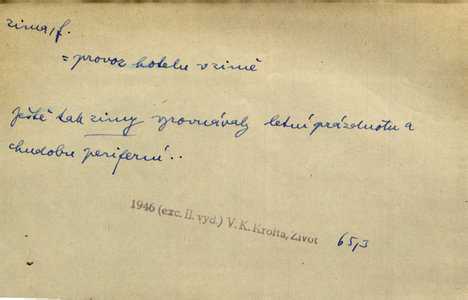 zima, f.
= provoz hotelu v zimě
Ještě tak zimy vyrovnávaly letní prázdnotu a
chudobu periferní..
1946 (exc. II. vyd.) V. K. Krofta, Život 65,3